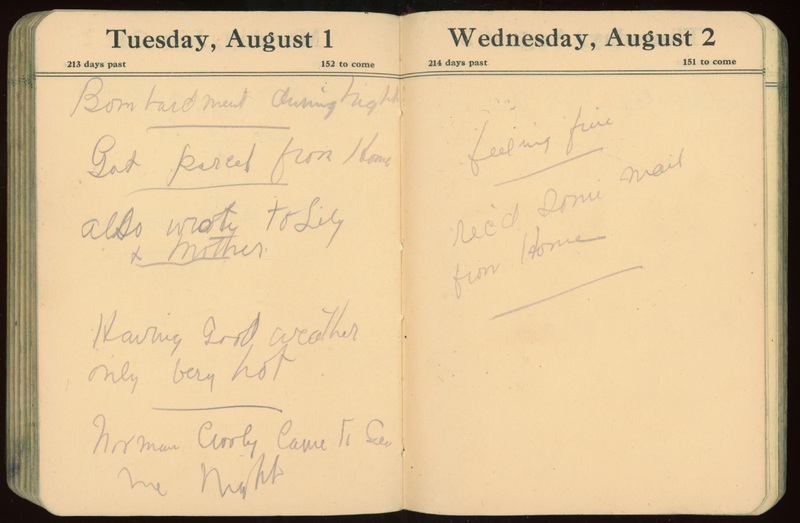 Tuesday, August 1
213 days past 152 to come
Bombardment during night
Got parcel from Home
also wrote to Lily
& Mother
Having Good weather
only very hot
Norman Came to See
me Night
Wednesday, August 2
214 days past 151 to come
feeling fine
rec'd some mail
from Home